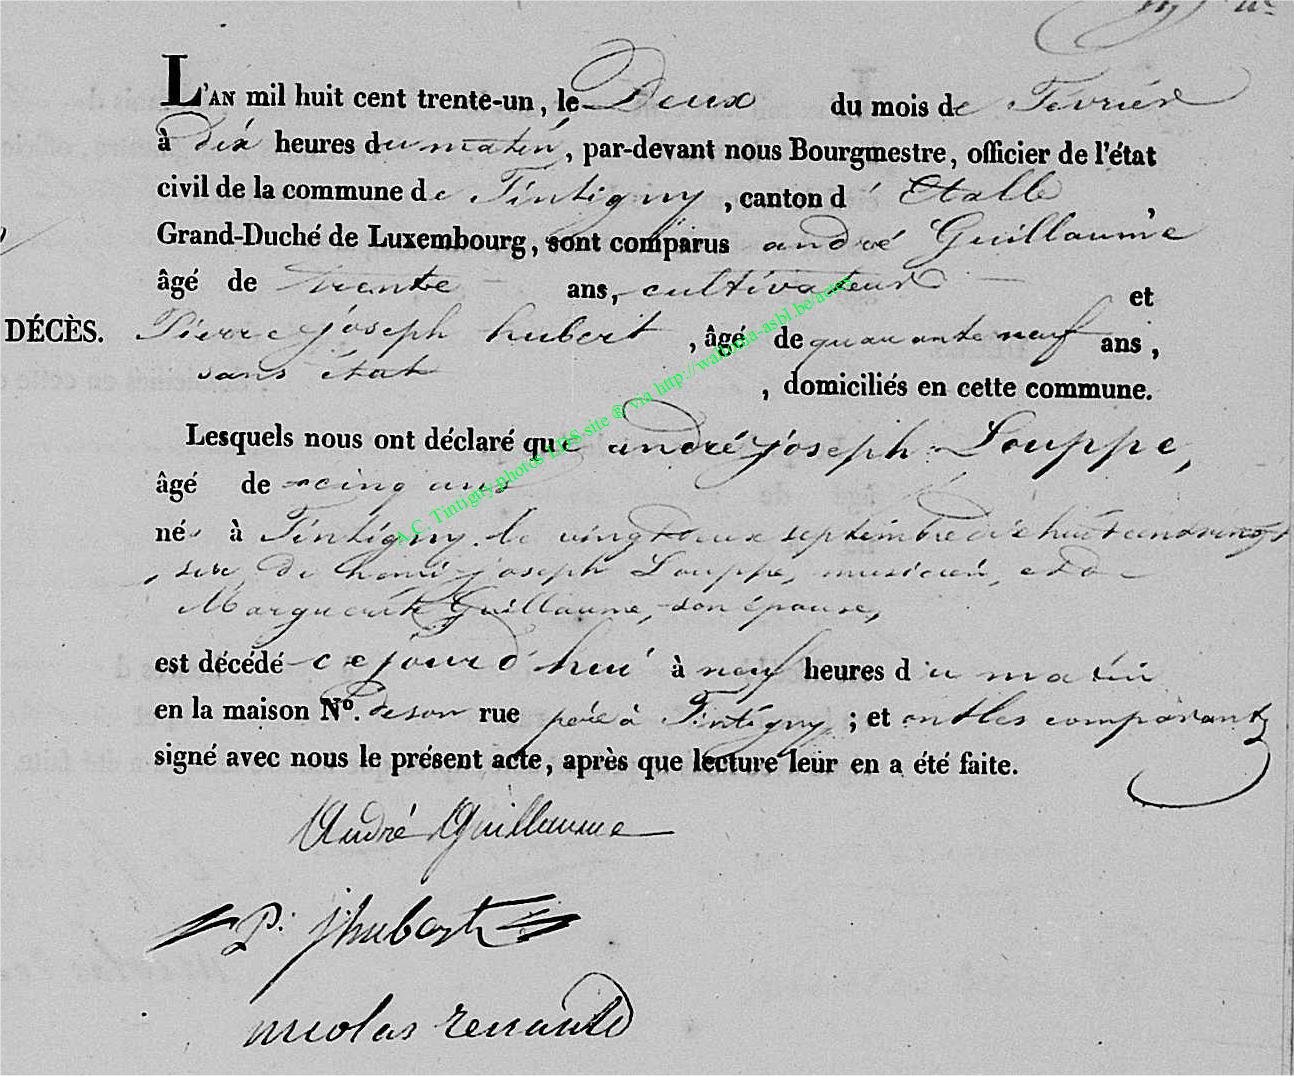 L'AN mil huit cent trente-un, le Deux du mois de Février
à dix heures du matin, par-devant nous Bourgmestre, officier de l'état
civil de la commune de Tintigny, canton d'Etalle,
Grand-Duché de Luxembourg, sont comparus andré Guillaume
âgé de trente ans, cultivateur et
DÉCÈS. Pierre joseph hubert, âgé de quarante neuf ans,
sans état, domiciliés en cette commune.
Lesquels nous ont déclaré que andré joseph Louppe,
âgé de cinq ans
né à Tintigny le vingt deux septembre
de henri joseph Louppe, musicien, et de
Marguerite Guillaume, son épouse,
est décédé ce jourd'hui à neuf heures du matin
en la maison N°. de son rue père à Tintigny; et ont les comparants
signé avec nous le présent acte, après que lecture leur en a été faite.
André Guillaume
P. jhubert
nicolas
A.C. Tintigny photos LDS site ® via http://wallonia-asbl.be/actes